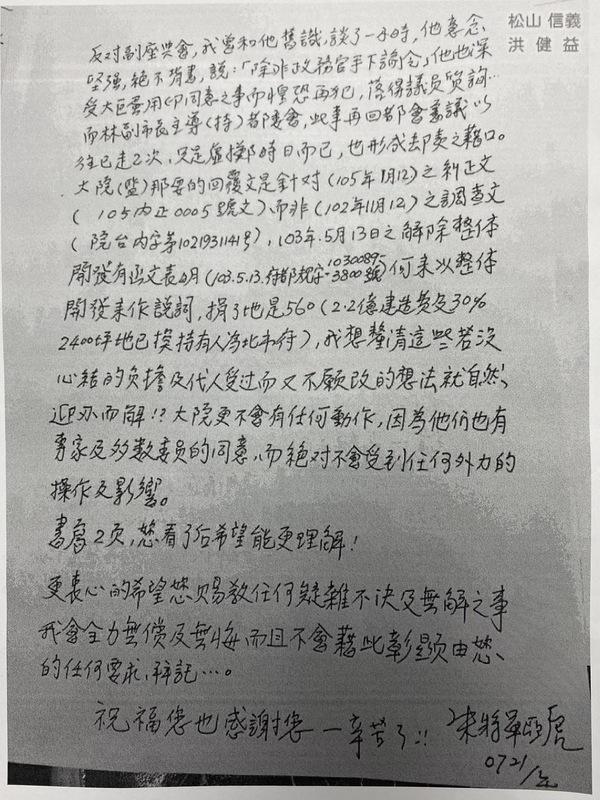 松山 信義
洪健益
反対副座與會，我曾和他舊識，談了一小時，他意念
堅强，絕不背書，說：「除非政務官手下諭令」他也深
受大巨蛋用印同意之事而惶恐再犯，落得議員質詢…
而林副市長主導(持)都委會，此事再回都會審議以
往已走2次，只是虛擲時日而已，也形成去即責之藉口。
大院(監)那要的回覆文是針对(105年1月12)之糾正文
( 105內正0005號文)而非(102年11月12)之調查文
(院台內字第1021931141号)，103年.5月13日之解除整体
開發有函文表明(103.5.13.府都規字-10300895
3800號)何來以整体
開發来作說詞，捐了地是560(2.2億建造費及30%
2400坪地已換持有人為北市府)，我想釐清這些若沒
心結的负擔及代人受过而又不願改的想法就自然、
迎刃而解!?大院更不會有任何動作，因為他们也有
專家及多數委員的同意，而絕对不會受到任何外力的
操作及影響。
書寫2页，您看了后希望能更理解!
更衷心的希望您賜教任何疑難不决及無解之事
我會全力無償及無悔而且不會藉此彰顯由您、
的任何要求，辩記…。
祝福您也感謝您－辛苦了!!
0721/